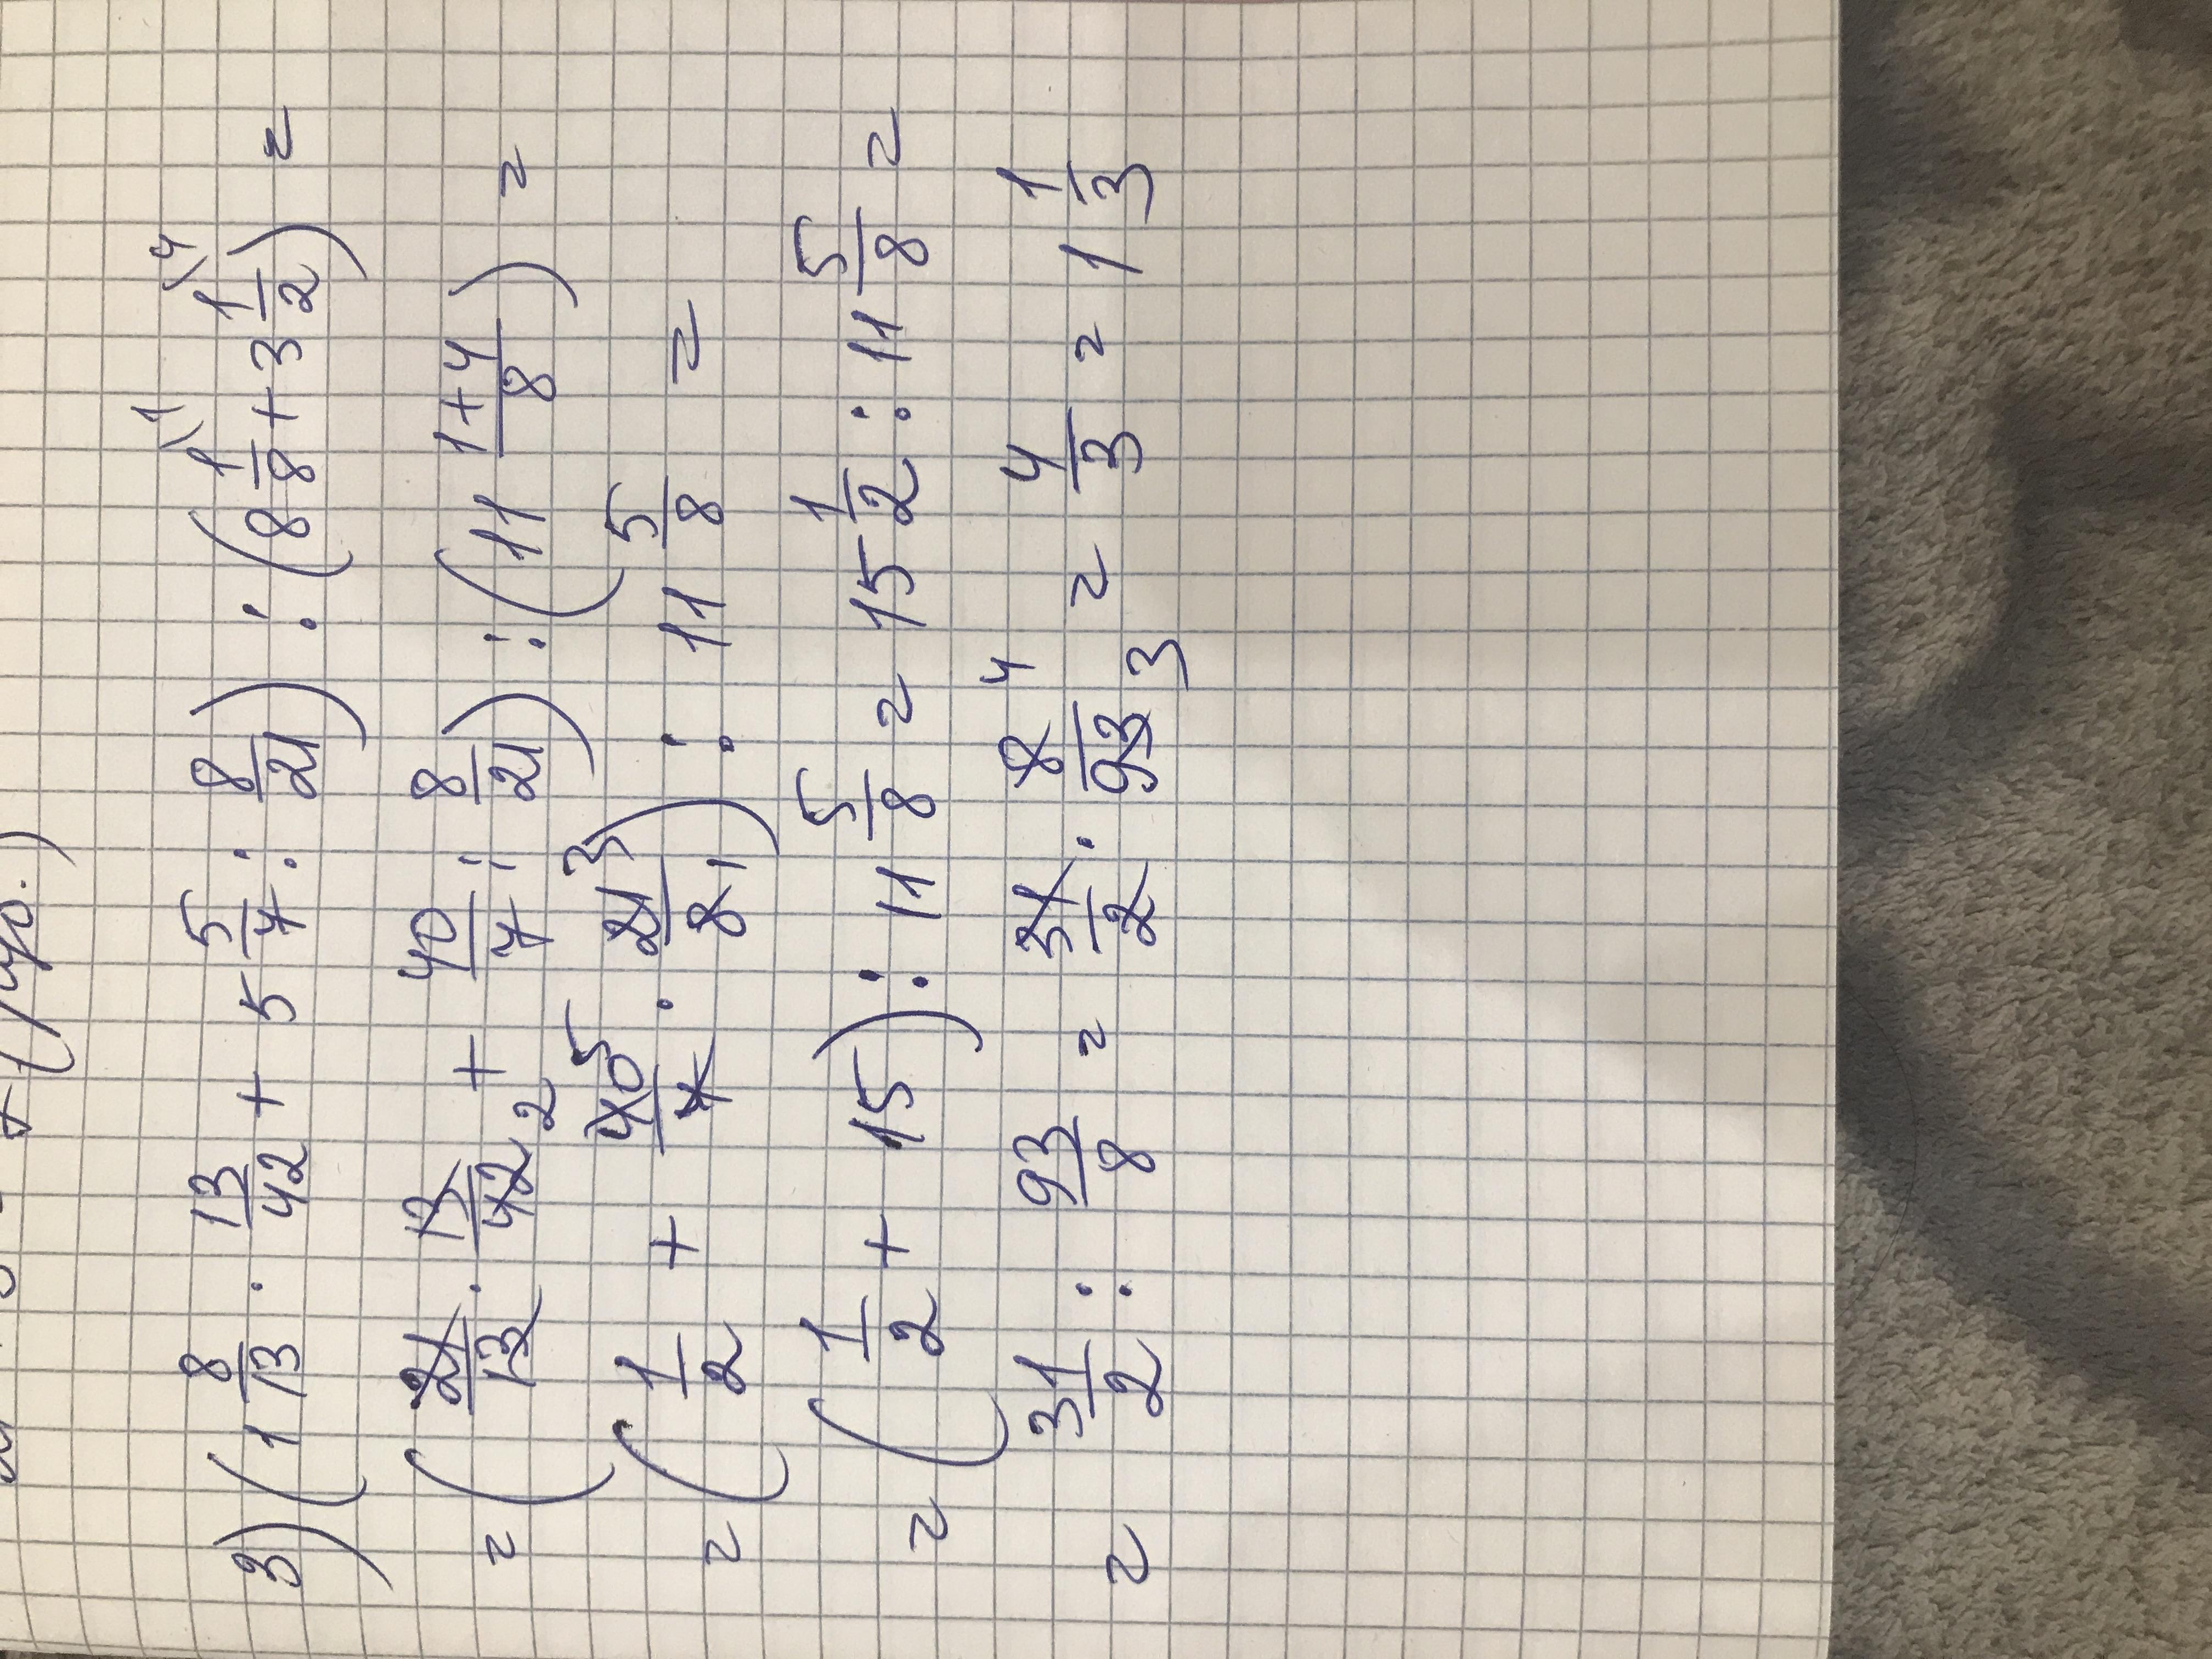 + (руб.)
3) (1 8/13 · 13/42 + 5 5/7 : 8/21) : (8 1/8 \1 + 3 1/2 \4) =
= (21/13 · 13/42 2 + 40/7 : 8/21) : (11 1+4/8) =
= (1/2 + 40/7 5 · 21/8 3 1) : 11 5/8 =
= (1/2 + 15) : 11 5/8 = 15 1/2 : 11 5/8 =
= 31/2 : 93/8 = 31/2 · 8/93 4 3 = 4/3 = 1 1/3